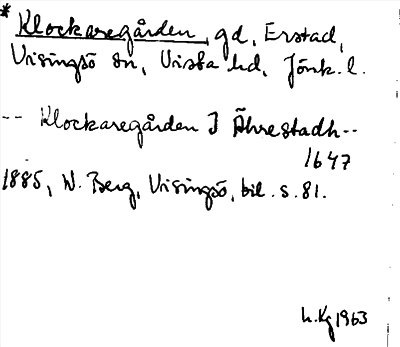 * Klockaregården, gd, Erstad,
Visingsö sn, Vista hd, Jönk. l.
-- Klockaregården J Åhrestadh --
1647
1885, W. Berg, Visingsö, bil. s. 81.
h.Kg 1963